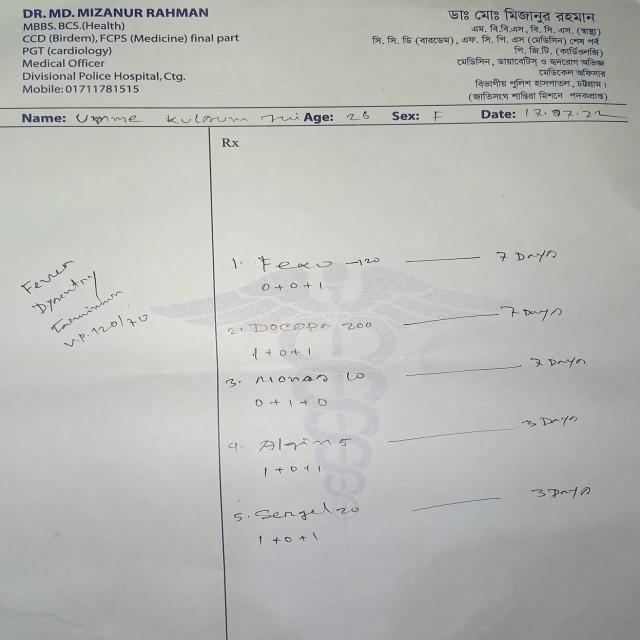 DR. MD. MIZANUR RAHMAN
MBBS. BCS.(Health)
CCD (Birdem), FCPS (Medicine) final part
PGT (cardiology)
Medical Officer
Divisional Police Hospital, Ctg.
Mobile: 01711781515
ডাঃ মোঃ মিজানুর রহমান
এম. বি.বি.এস, বি. সি. এস. (স্বাস্থ্য)
সি. সি. ডি (বারডেম), এফ. সি. পি. এস (মেডিসিন) শেষ পর্ব
পি. জি.টি. (কার্ডিওলজি)
মেডিসিন, ডায়াবেটিস্ ও হৃদরোগ অভিজ্ঞ
মেডিকেল অফিসার
বিভাগীয় পুলিশ হাসপাতাল, চট্টগ্রাম।
(জাতিসংঘ শান্তিরক্ষা মিশনে পদকপ্রাপ্ত)
Name: Umme Kulsum Age: 26 Sex: F Date: 17.07.22
Rx
Fever
Dysentry
B.P-120/70
1. Fexo -120 7 Days
0+0+1
2. Docopa 200 7 Days
1+0+1
3. Monas 10 7 Days
0+1+0
4. Algin 5 3 Days
1+0+1
5. Sergel 20 3 Days
1+0+1